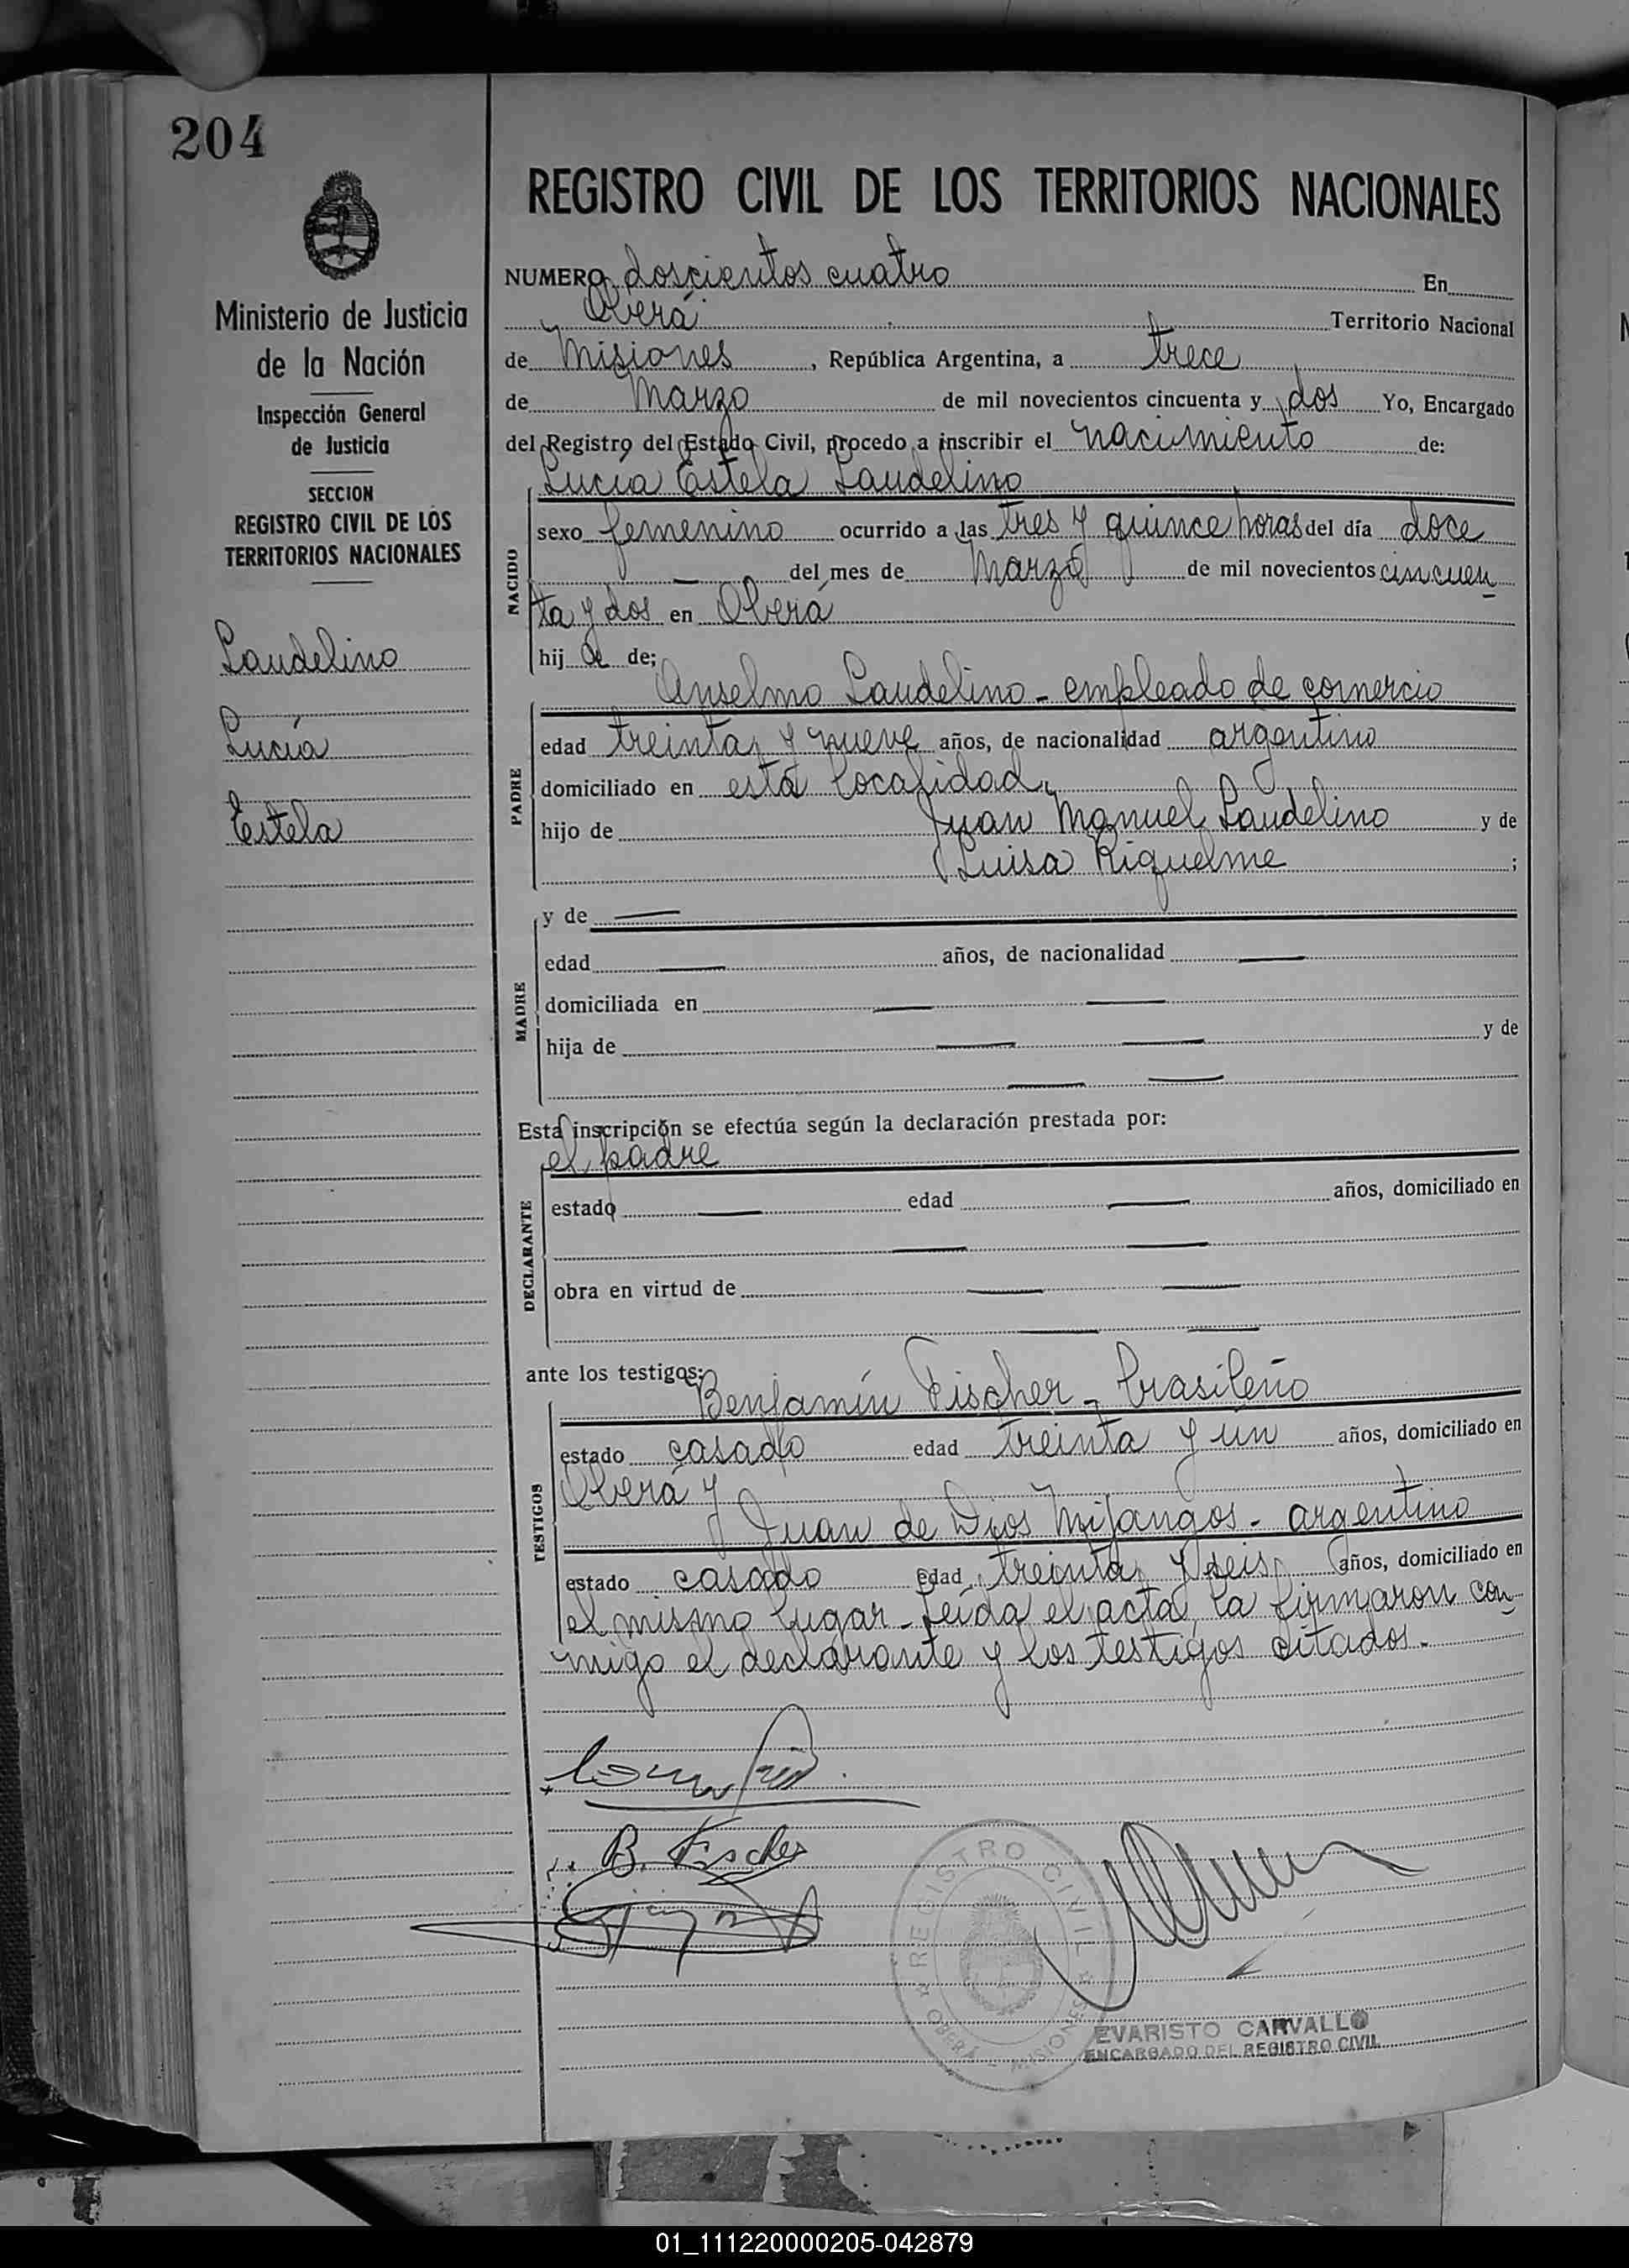 204
Ministerio de Justicia
de la Nación
Inspección General
de Justicia
SECCION
REGISTRO CIVIL DE LOS
TERRITORIOS NACIONALES
Laudelino
Lucía
Estela
REGISTRO CIVIL DE LOS TERRITORIOS NACIONALES
NUMERO doscientos cuatro En
Oberá Territorio Nacional
de Misiones, República Argentina, a trece
de Marzo de mil novecientos cincuenta y dos Yo, Encargado
del Registro del Estado Civil, procedo a inscribir el nacimiento de:
Lucía Estela Laudelino
NACIDO
sexo femenino ocurrido a las tres y quince horas del día doce
del mes de Marzo de mil novecientos cincuen
ta y dos en Oberá
hij a de;
Anselmo Laudelino - empleado de comercio
PADRE
edad treinta y nueve años, de nacionalidad argentino
domiciliado en esta localidad,
hijo de Juan Manuel Laudelino y de
Luisa Riquelme ;
y de
MADRE
edad años, de nacionalidad
domiciliada en
hija de y de
Esta inscripción se efectúa según la declaración prestada por:
el padre
DECLARANTE
estado edad años, domiciliado en
obra en virtud de
ante los testigos:
Benjamín Fischer - brasileño
TESTIGOS
estado casado edad treinta y un años, domiciliado en
Oberá y
Juan de Dios Mijangos - argentino
estado casado edad treinta y seis años, domiciliado en
el mismo lugar - Leída el acta, la firmaron con
migo el declarante y los testigos citados.-
B. Fischer
REGISTRO CIVIL
OBERA - MISIONES
EVARISTO CARVALLO
ENCARGADO DEL REGISTRO CIVIL
01_111220000205-042879